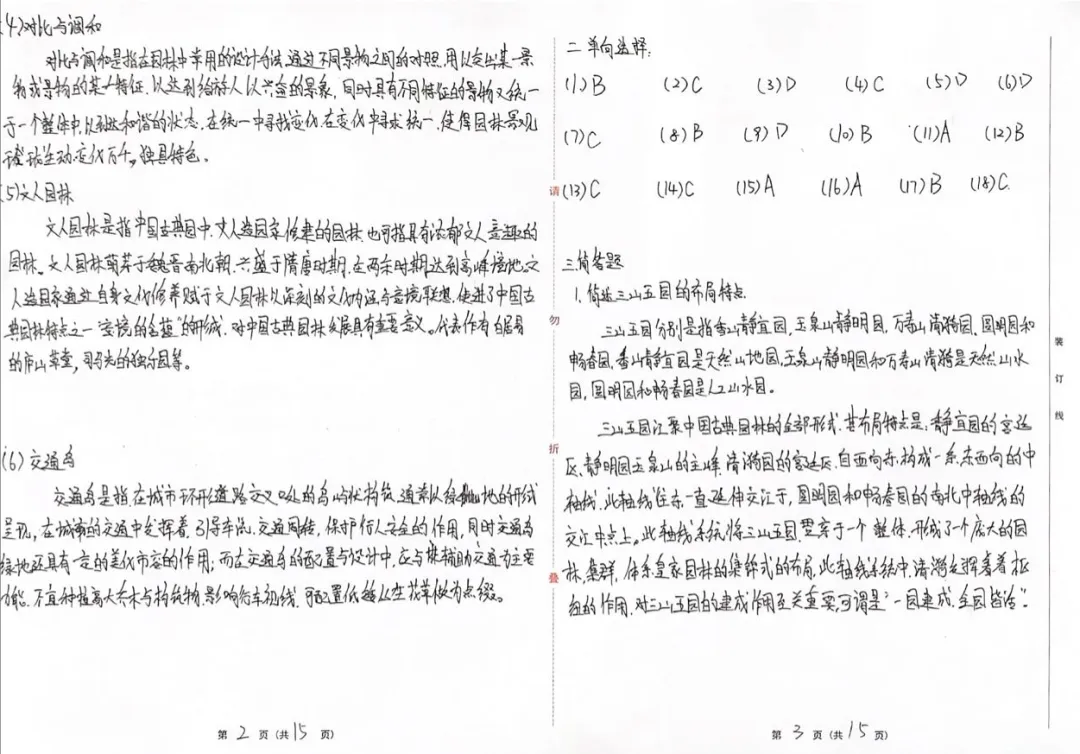 (4)对比与调和
对比与调和是指在园林中常用的设计方法,通过不同景物之间的对照,用以突出某一景
物或景物的某一特征,以达到给游人以兴奋的景象,同时具有不同特征的景物又统一
于一个整体中,以到达和谐的状态,在统一中寻找变化,在变化中寻求统一,使得园林景观
生动,变化万千,独具特色。
(5)文人园林
文人园林是指中国古典园中,文人造园家修建的园林,也可指具有浓郁文人意趣的
园林。文人园林萌芽于魏晋南北朝,兴盛于隋唐时期,在两宋时期达到高峰境地,文
人造园家通过自身文化修养赋于文人园林以深刻的文化内涵与意境联想,促进了中国古
典园林特点之一“意境的含蕴”的形成,对中国古典园林发展具有重要意义。代表作有白居易
的庐山草堂,司马光的独乐园等。
(6)交通岛
交通岛是指,在城市环形道路交叉口处的岛屿状构筑,通常以绿地的形式
呈现,在城市的交通中发挥着,引导车流,交通周转,保护行人安全的作用,同时交通岛
绿地还具有一定的美化市容的作用;而在交通岛的配置与设计中,应与辅助交通为主要
功能,不宜种植高大乔木与构筑物,影响行车视线,可配置低矮花草做为点缀。
第 2 页(共 15 页)
请
勿
折
叠
二 单向选择:
(1)B (2)C (3)D (4)C (5)D (6)D
(7)C (8)B (9)D (10)B (11)A (12)B
(13)C (14)C (15)A (16)A (17)B (18)C
三.简答题
1.简述三山五园的布局特点.
三山五园分别是指香山静宜园,玉泉山静明园,万寿山清漪园,圆明园和
畅春园,香山静宜园是天然山地园,玉泉山静明园和万寿山清漪是天然山水
园,圆明园和畅春园是人工山水园。
三山五园汇聚中国古典园林的全部形式,其布局特点是:静宜园的宫廷
区,静明园玉泉山的主峰,清漪园的宫廷区,自西向东,构成一条,东西向的中
轴线,此轴线往东一直延伸交汇于,圆明园和畅春园的南北中轴线的
交汇中点上。此轴线系统将三山五园贯穿于一个整体,形成了个庞大的园
林,集群,体系皇家园林的集锦式的布局,此轴线系统中,清漪发挥着着枢
纽的作用,对三山五园的建成作用至关重要,可谓是“一园建成,全园皆活”。
第 3 页(共 15 页)
装
订
线